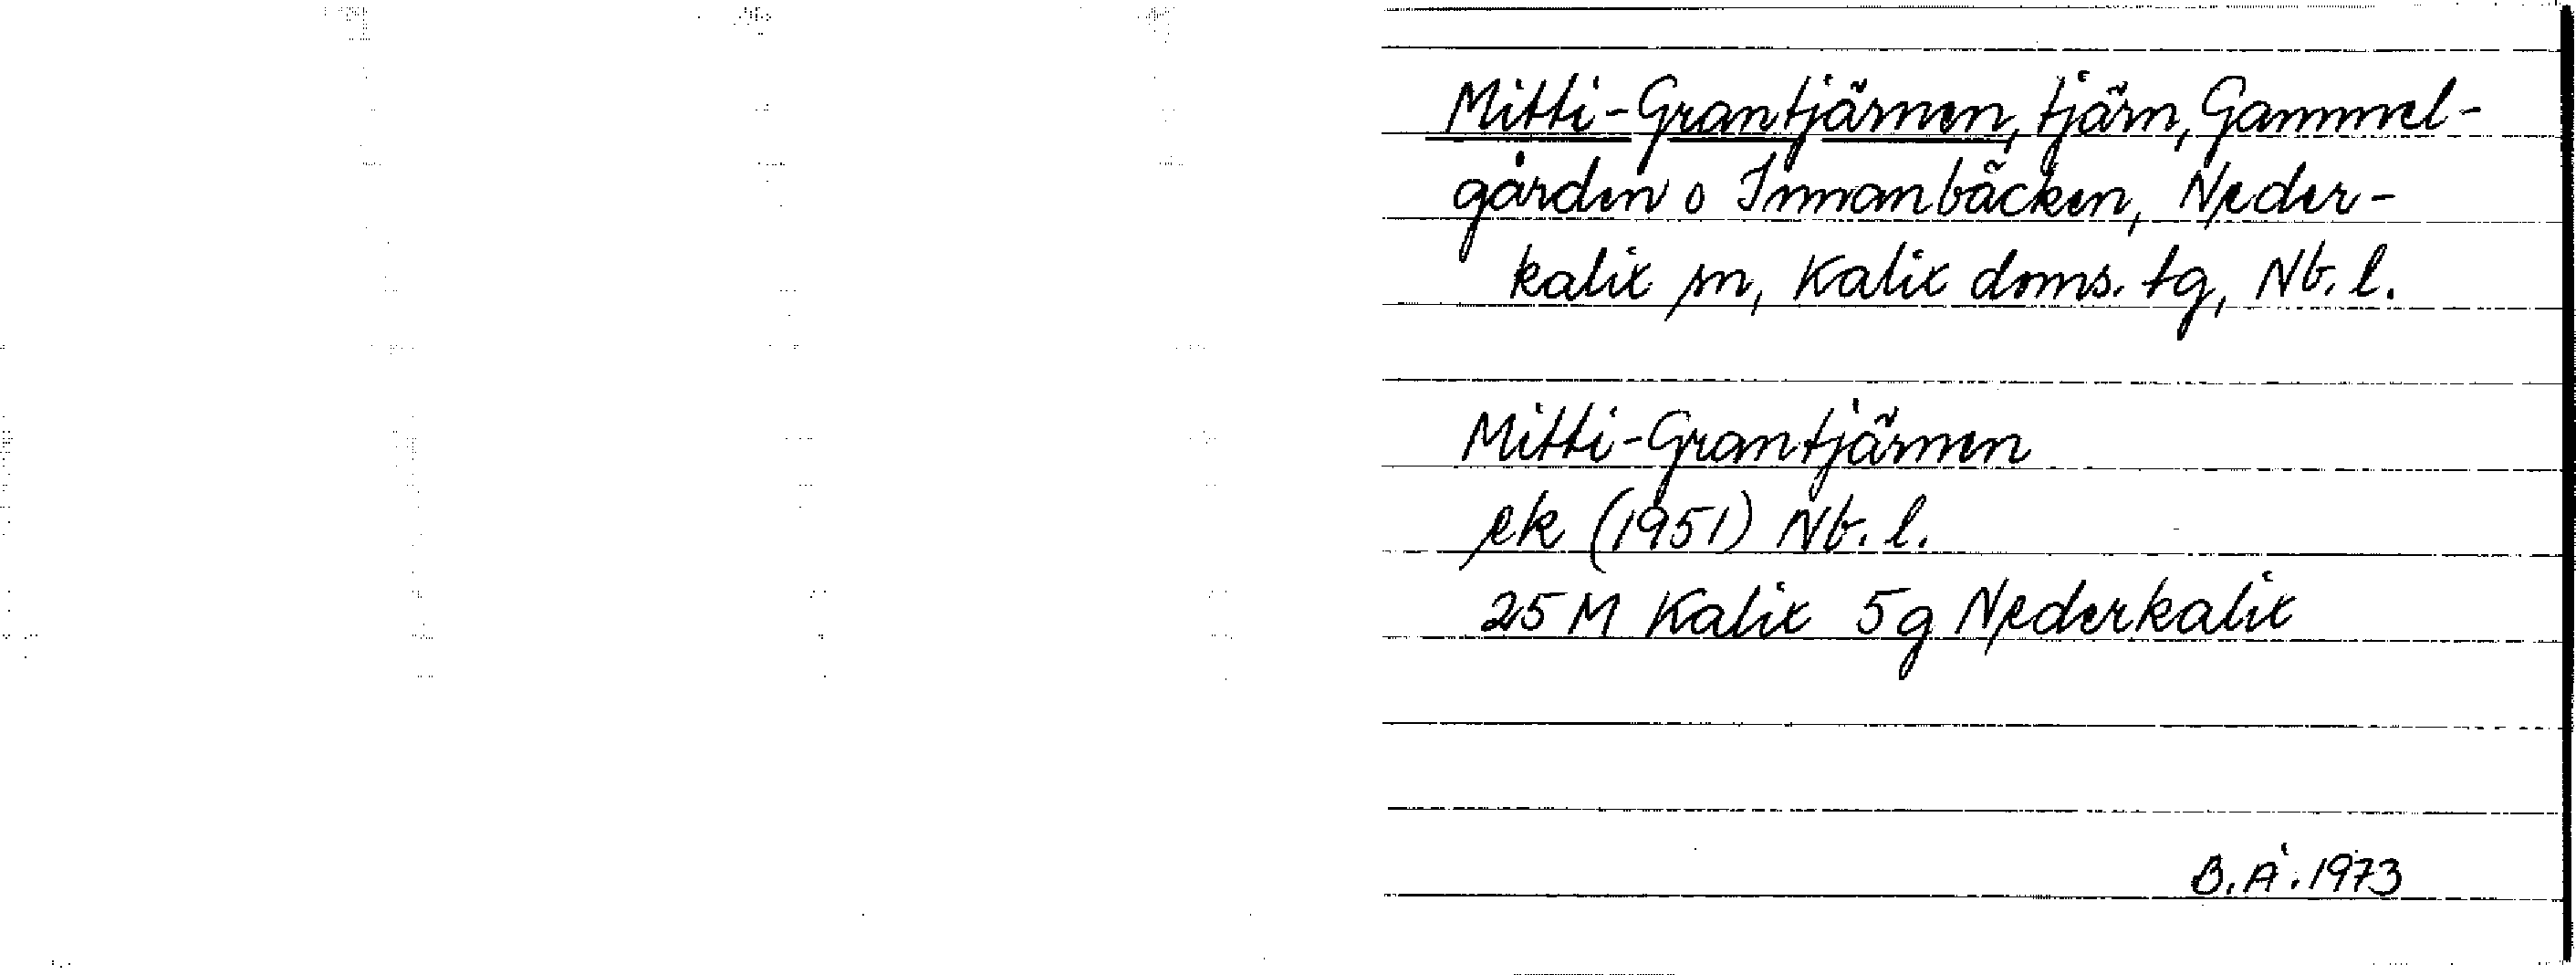 Mitti-Grantjärnen, tjärn, Gammel-
gården o Innanbäcken, Neder-
kalix sn, Kalix doms. tg, Nb. l.
Mitti-Grantjärnen
ek (1951) Nb. l.
25 M Kalix 5g Nederkalix
B.Å. 1973